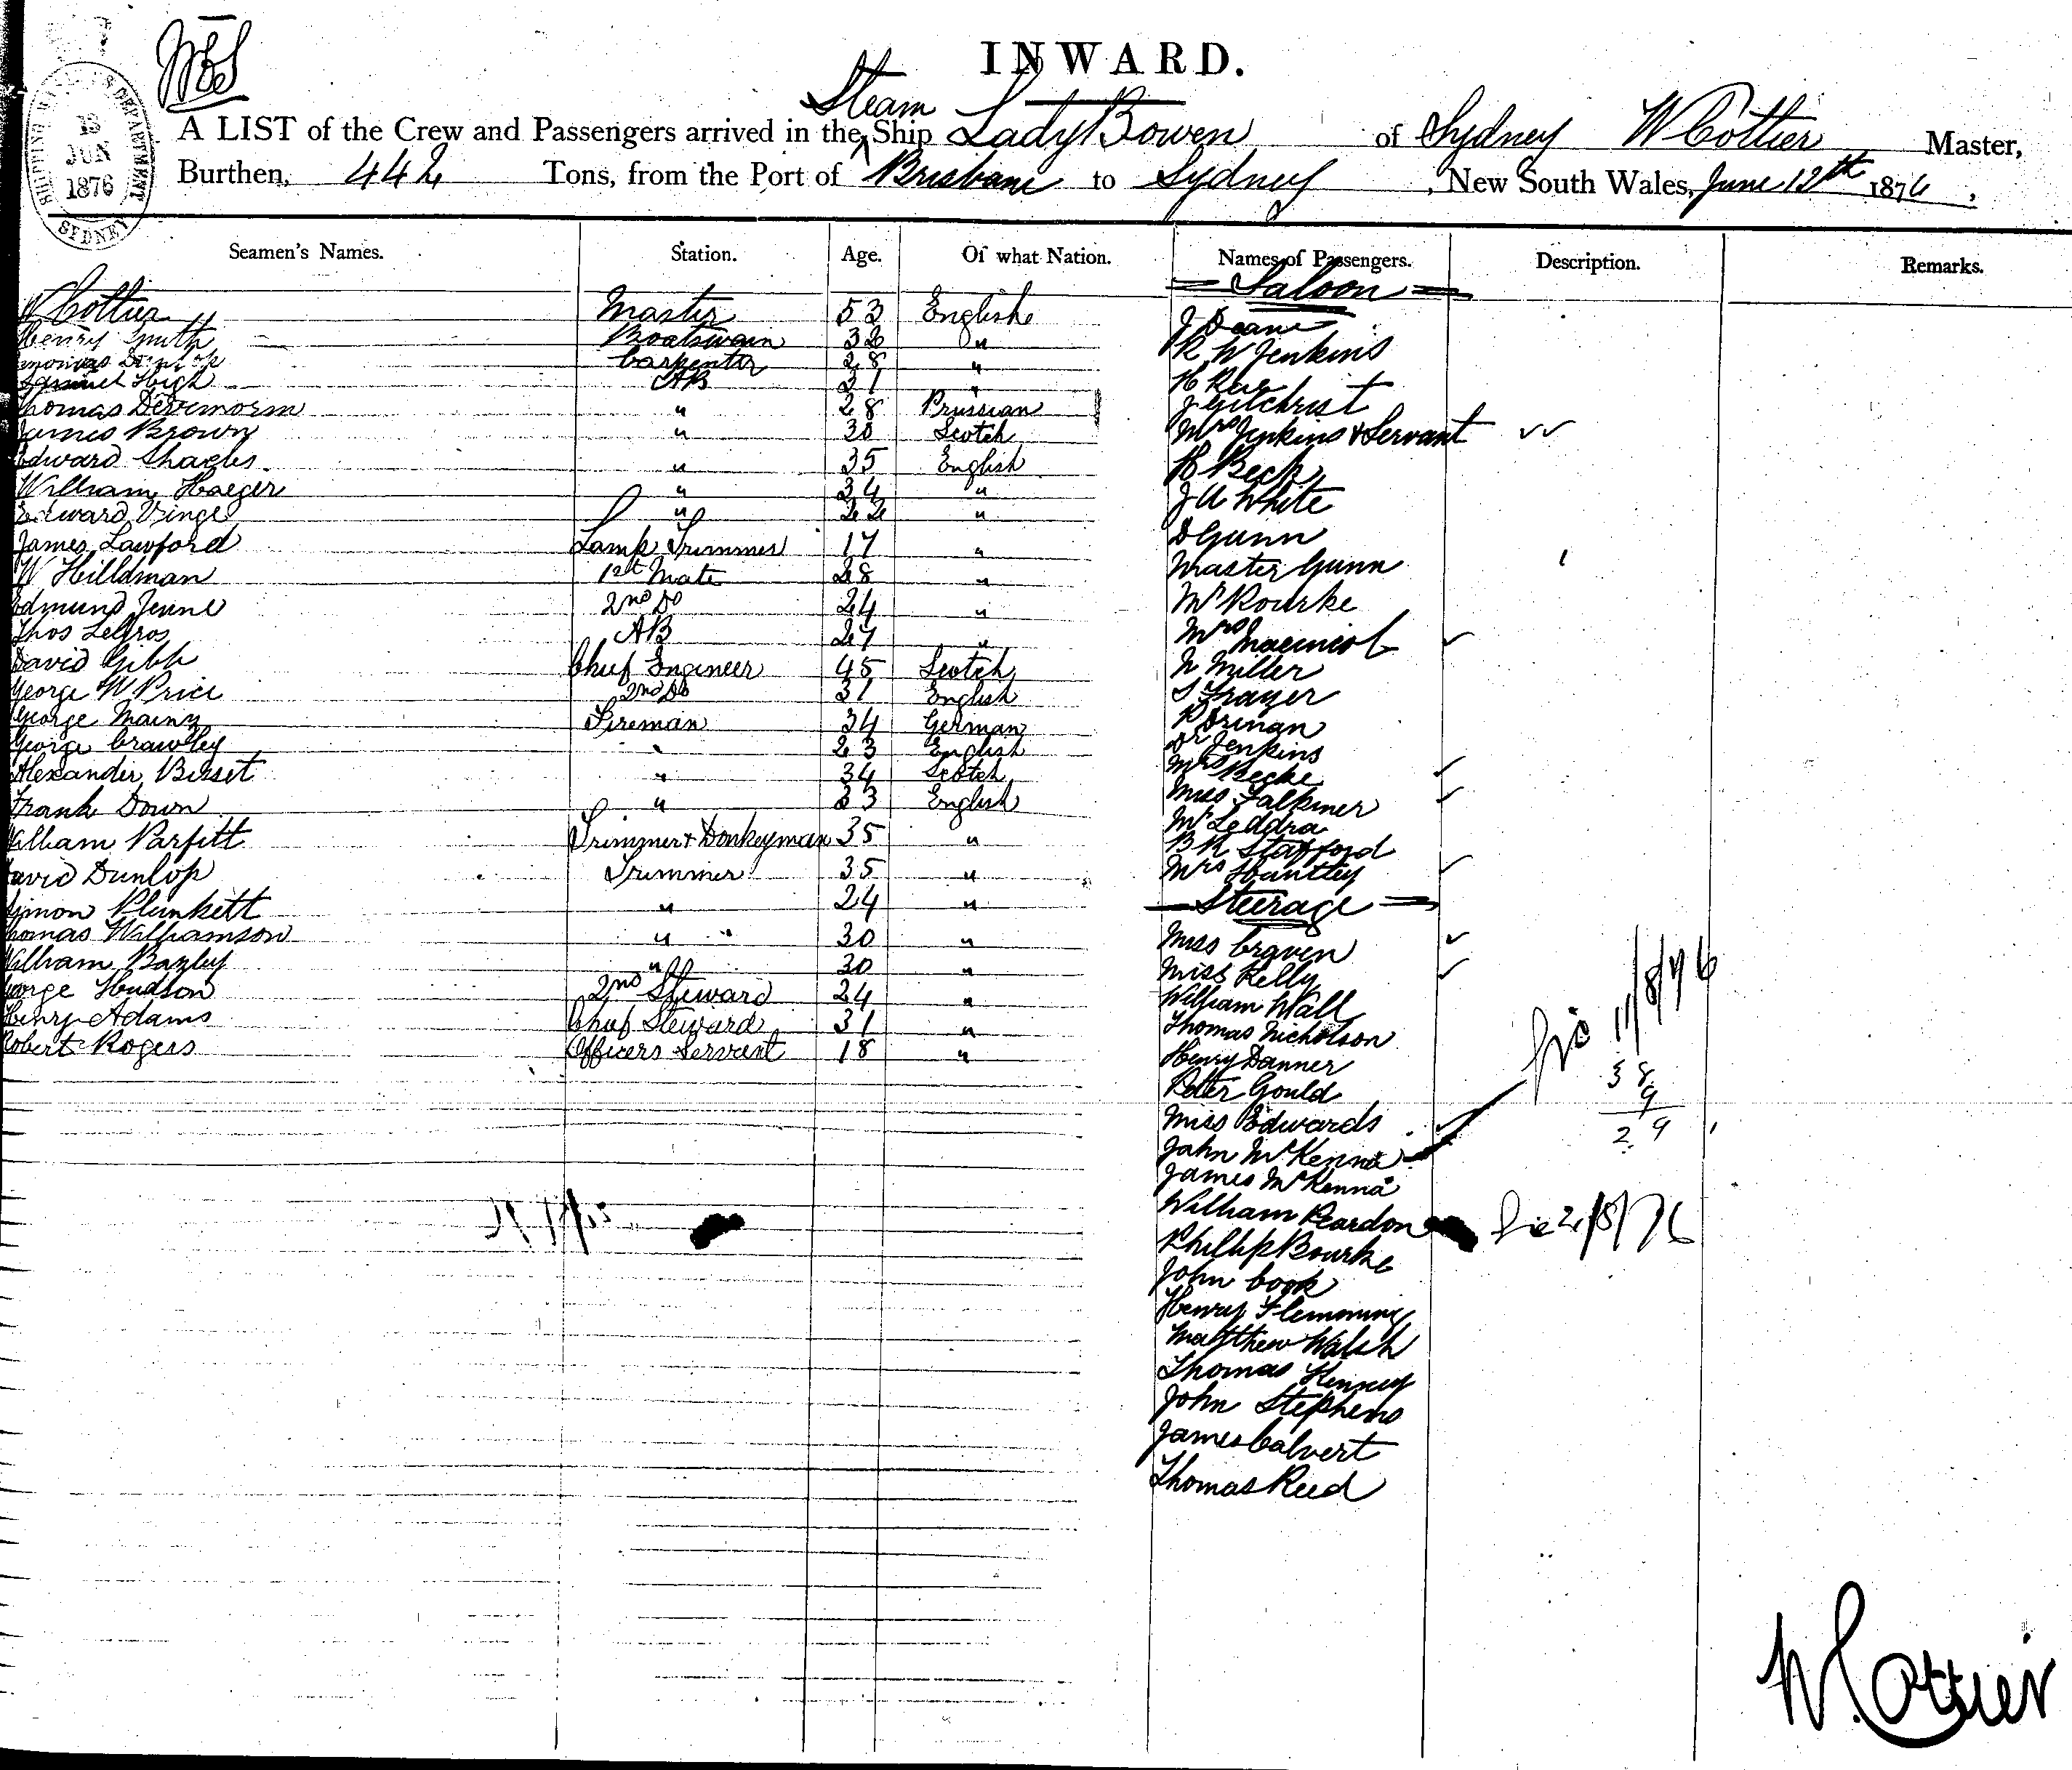 INWARD.
A LIST of the Crew and Passengers arrived in the Steam Ship Lady Bowen of Sydney W Cottier Master,
Burthen, 442 Tons, from the Port of Brisbane to Sydney, New South Wales, June 13th 1876,
SHIPPING MASTER'S DEPARTMENT
13 JUN 1876
SYDNEY
Seamen's Names. Station. Age. Of what Nation. Names of Passengers. Description. Remarks.
W Cottier Master 53 English
Henry Smith Boatswain 32 "
Carpenter 28 "
Samuel High AB 31 "
Thomas 28 Prussian
James Brown " 30 Scotch
Edward Shacles " 35 English
William Haeger " 34 "
Edward Vinge " 22 "
James Lawford Lamp Trimmer 17 "
W Hilldman 1st Mate 28 "
Edmund Jenne 2nd Do 24 "
Thos LeGros AB 27 "
David Gibb Chief Engineer 45 Scotch
George W Price 2nd Do 31 English
George Mainz Fireman 34 German
George Crawley " 23 English
Alexander Bisset " 34 Scotch
Frank Down " 23 English
William Parfitt Trimmer & Donkeyman 35 "
David Dunlop Trimmer 35 "
Simon Plunkett " 24 "
Thomas Williamson " " 30 "
William Bazley " 30 "
George Hudson 2nd Steward 24 "
Henry Adams Chief Steward 31 "
Robert Rogers Officers Servant 18 "
Saloon
J Deane
R W Jenkins
H Rae
J Gilchrist
Mrs Jenkins & Servant
H Beck
J A White
D Gunn
Master Gunn
Mr Rourke
Mrs Macnicol
N Miller
T Frazer
P Brinan
Dr Jenkins
Mrs Becke
Miss Falkiner
Mr Leddra
B R Stafford
Mrs Huntley
Steerage
Miss Craven
Miss Kelly
William Wall
Thomas Nicholson
Henry Danner
Peter Gould
Miss Edwards
John McKenna
James McKenna
William Reardon
Phillip Bourke
John Cook
Henry Flemming
Matthew Walsh
Thomas Kenney
John Stephens
James Calvert
Thomas Reed
11/8/76
38
9
29
2/8/76
W. Cottier